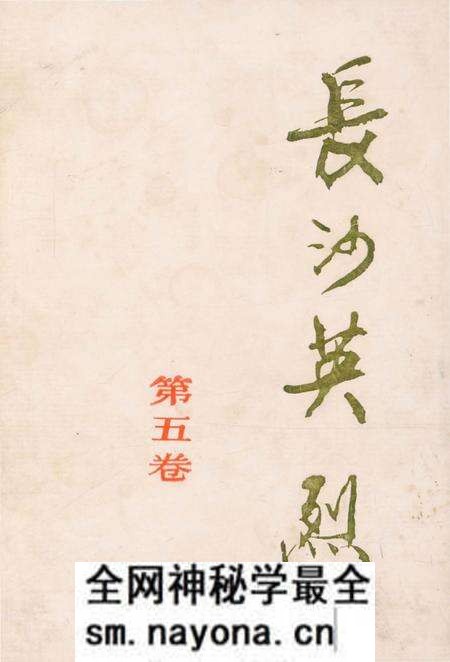 長沙英烈
第五卷
全网神秘学最全
sm.nayona.cn